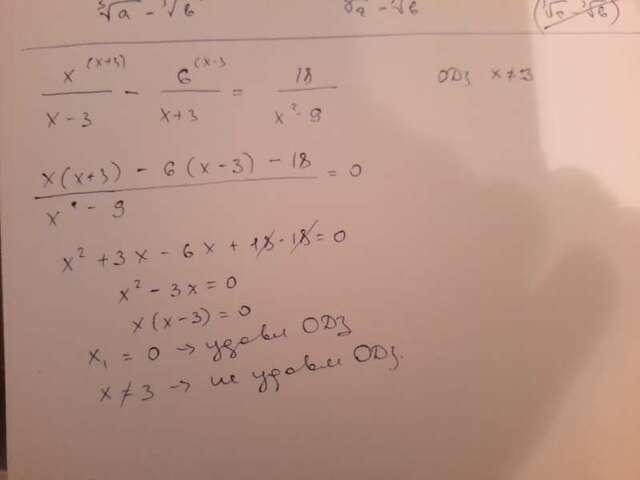 ∛a - ∛b
x^(x+3)/(x-3) - 6^(x-3/(x+3) = 18/(x²-9) ОДЗ x≠3
(x(x+3) - 6(x-3) - 18)/(x²-9) = 0
x² + 3x - 6x + 18 - 18 = 0
x² - 3x = 0
x(x-3) = 0
x₁ = 0 → удовл ОДЗ
x ≠ 3 → не удовл ОДЗ.